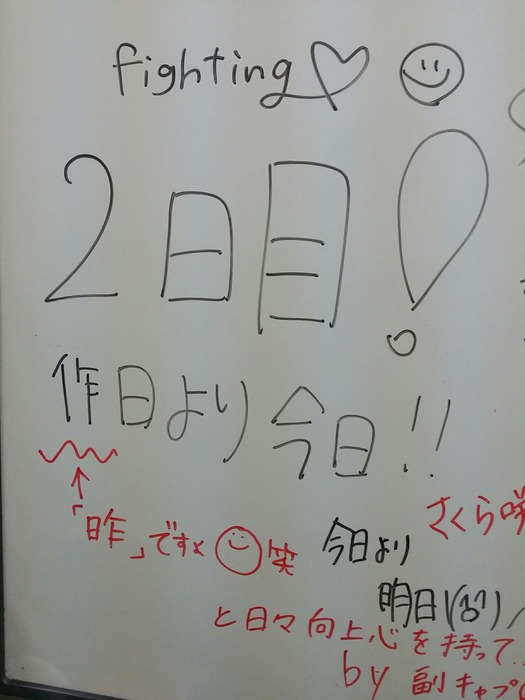 fighting
2日目!
作日より今日!!
「昨」ですよ 笑
さくら咲
今日より
明日(^o^)
と日々向上心を持って
by 副キャプ